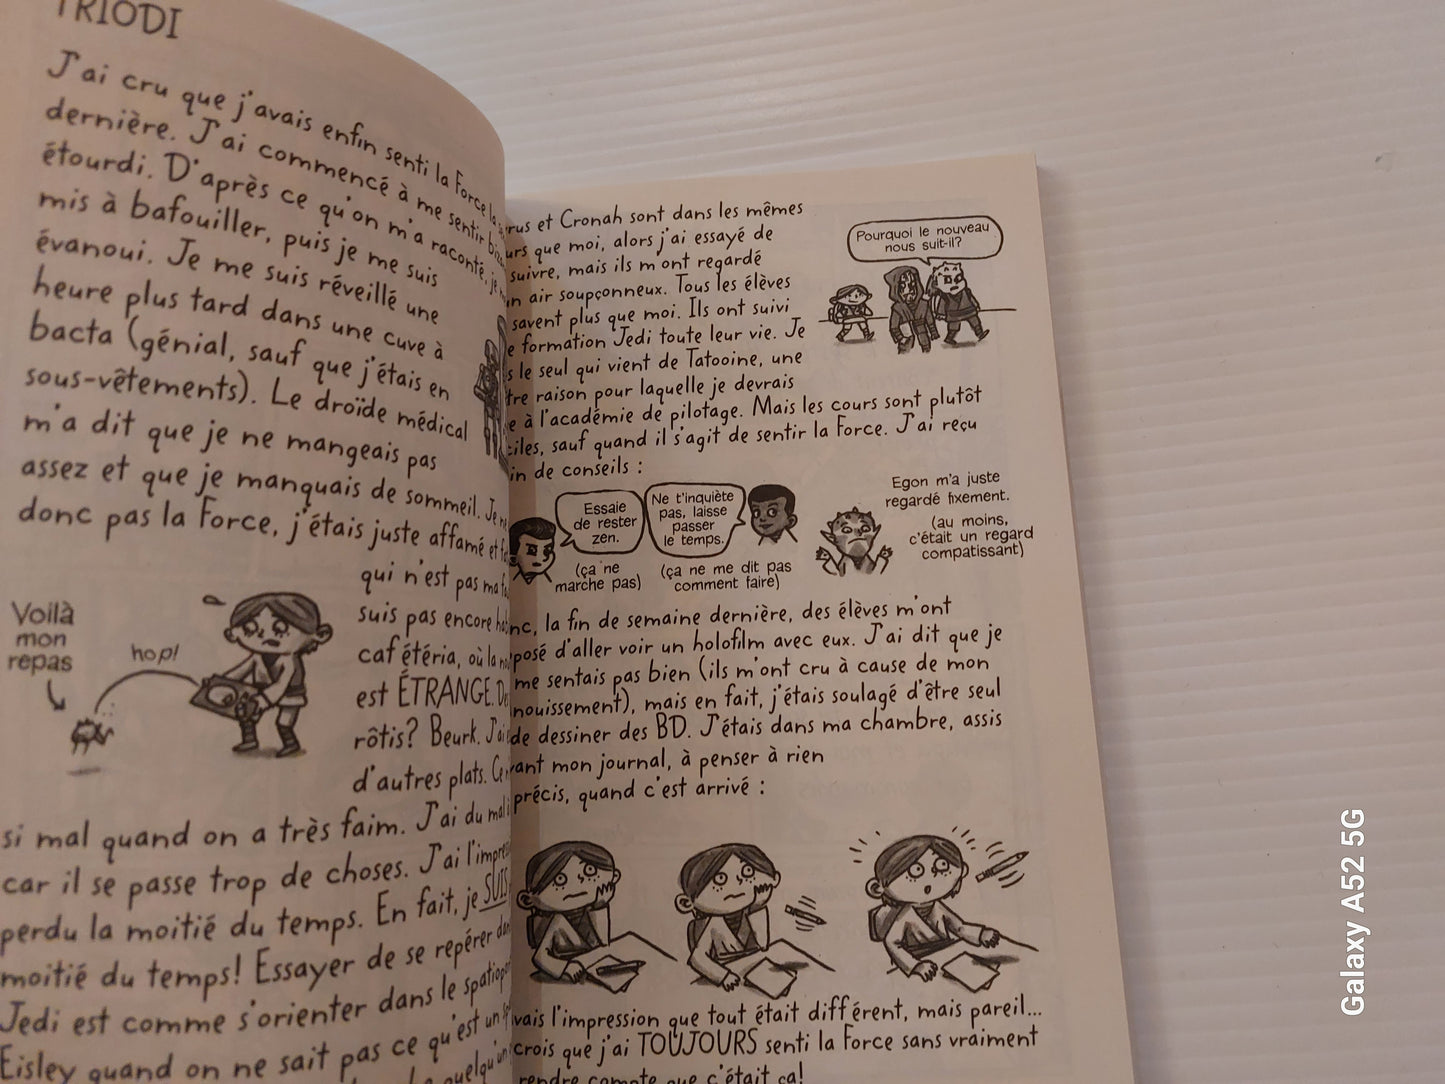 TRIODI
J'ai cru que j'avais enfin senti la Force la
dernière. J'ai commencé à me sentir
étourdi. D'après ce qu'on m'a raconté, je
mis à bafouiller, puis je me suis
évanoui. Je me suis réveillé une
heure plus tard dans une cuve à
bacta (génial, sauf que j'étais en
sous-vêtements). Le droïde médical
m'a dit que je ne mangeais pas
assez et que je manquais de sommeil. Je
donc pas la Force, j'étais juste affamé et
qui n'est pas ma
suis pas encore
cafétéria, où la
est ÉTRANGE.
rôtis? Beurk. J'ai
d'autres plats.
Voilà
mon
repas
hop!
si mal quand on a très faim. J'ai du mal
car il se passe trop de choses. J'ai
perdu la moitié du temps. En fait, je SUIS
moitié du temps! Essayer de se repérer
Jedi est comme s'orienter dans le
Eisley quand on ne sait pas ce qu'est un
et Cronah sont dans les mêmes
que moi, alors j'ai essayé de
suivre, mais ils m'ont regardé
air soupçonneux. Tous les élèves
savent plus que moi. Ils ont suivi
formation Jedi toute leur vie. Je
le seul qui vient de Tatooine, une
raison pour laquelle je devrais
à l'académie de pilotage. Mais les cours sont plutôt
sauf quand il s'agit de sentir la Force. J'ai reçu
de conseils :
Pourquoi le nouveau
nous suit-il?
Essaie
de rester
zen.
(ça ne
marche pas)
Ne t'inquiète
pas, laisse
passer
le temps.
(ça ne me dit pas
comment faire)
Egon m'a juste
regardé fixement.
(au moins,
c'était un regard
compatissant)
la fin de semaine dernière, des élèves m'ont
d'aller voir un holofilm avec eux. J'ai dit que je
me sentais pas bien (ils m'ont cru à cause de mon
mais en fait, j'étais soulagé d'être seul
de dessiner des BD. J'étais dans ma chambre, assis
mon journal, à penser à rien
précis, quand c'est arrivé :
l'impression que tout était différent, mais pareil...
crois que j'ai TOUJOURS senti la Force sans vraiment
rendre compte que c'était ça!
Galaxy A52 5G